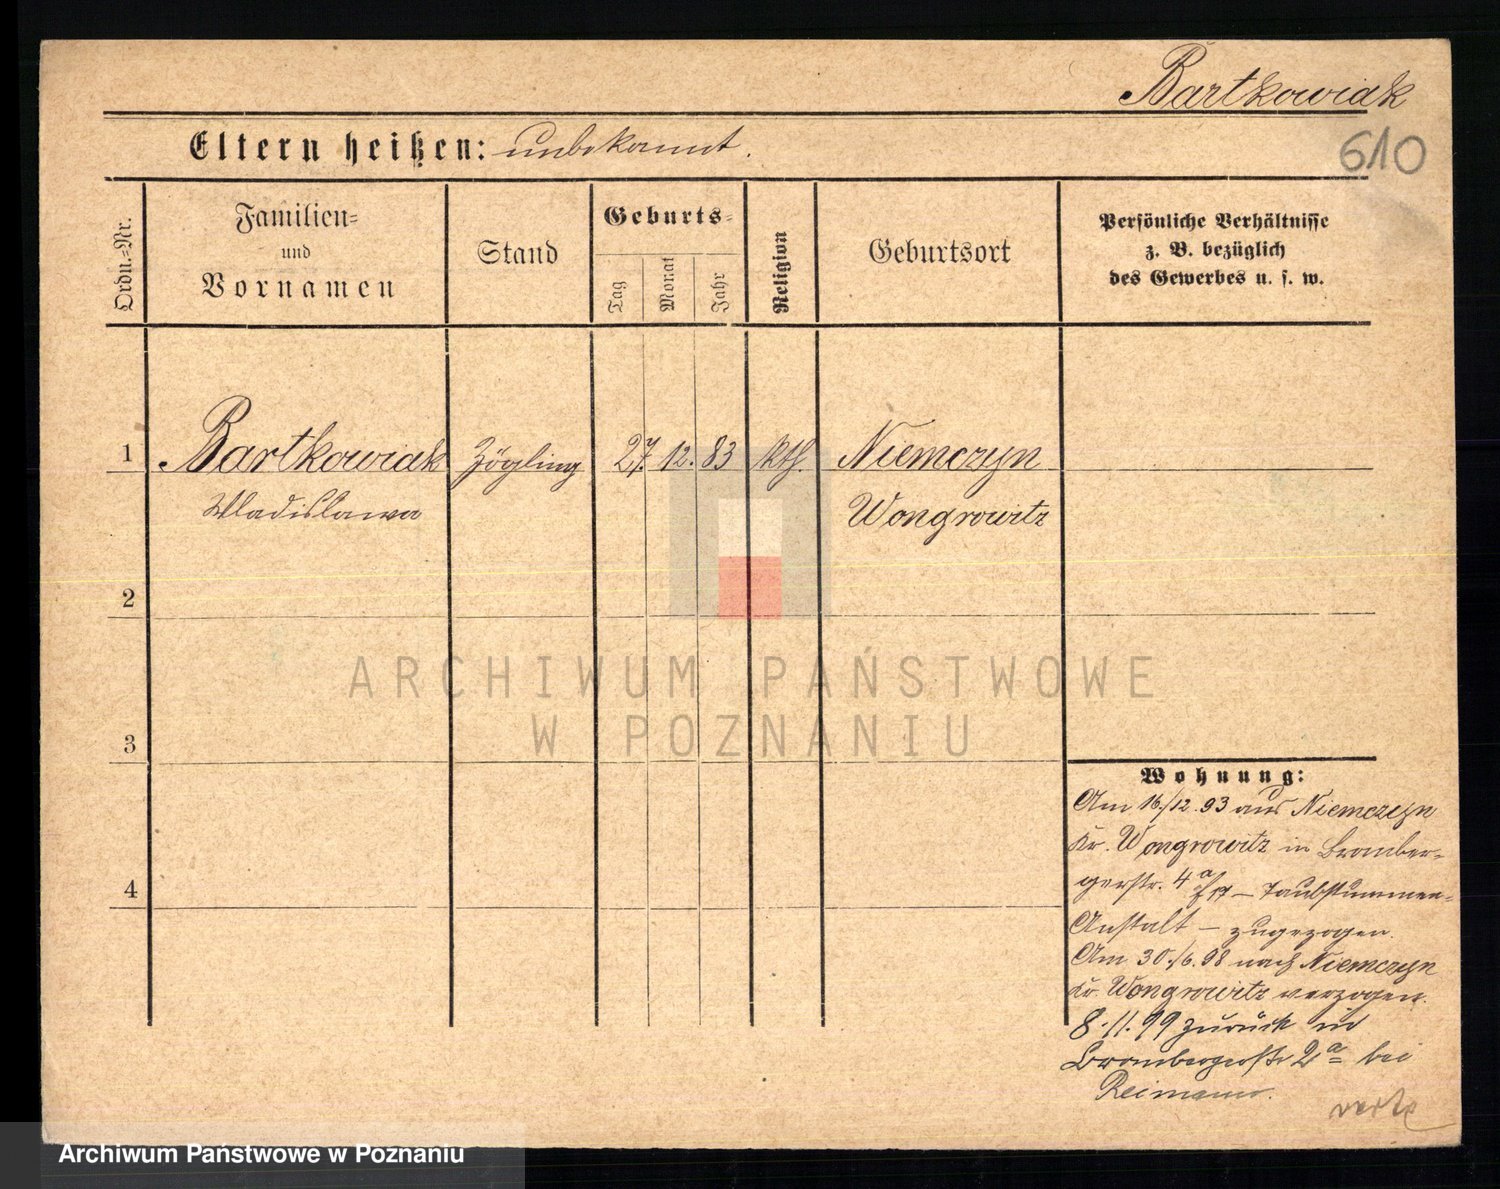 Bartkowiak
610
Eltern heißen: unbekannt.
Ordn.-Nr.
Familien-
und
Vornamen
Stand
Geburts-
Tag
Monat
Jahr
Religion
Geburtsort
Persönliche Verhältnisse
z. B. bezüglich
des Gewerbes u. s. w.
1
Bartkowiak Zögling 27. 12. 83 kth. Niemczyn
Wladislawa Wongrowitz
2
3
4
Wohnung:
Am 16./12.93 aus Niemczyn
Kr. Wongrowitz in Bromber-
gerstr. 4a — Taubstummen-
Anstalt — zugezogen.
Am 30./6.98 nach Niemczyn
Kr. Wongrowitz verzogen.
8.11.99 zurück in
Brombergerstr 2a bei
Reimann.
verte
ARCHIWUM PAŃSTWOWE
W POZNANIU
Archiwum Państwowe w Poznaniu